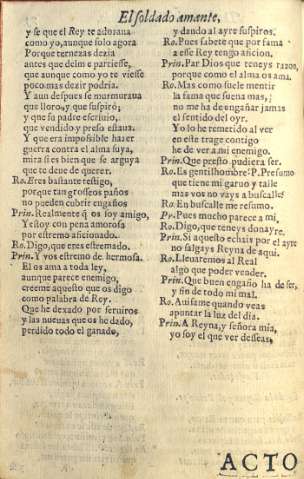 El soldado amante,
y se que el Rey te adoraua
como yo, aunque solo agora
Porque ternezas dezia
antes que deim e partiesse,
que aunque como yo te viesse
poco mas dezir podria.
Y aun despues se murmuraua
que lloro, y que suspirò;
y que su padre escriuio,
que vendido y preso estaua.
Y que era impossible hazer
guerra contra el alma suya,
mira si es bien que se arguya
que te deue de querer.
Ro. Eres bastante testigo,
porque tan grosseros paños
no pueden cubrir engaños
Prin. Realmente q̃ os soy amigo,
Y estoy con pena amorosa
por estremo aficionado.
Ro. Digo, que eres estremado.
Prin. Y vos estremo de hermosa.
El os ama a toda ley,
aunque parece enemigo,
creeme aquesto que os digo
como palabra de Rey.
Que he dexado por seruiros
y las nueuas que os he dado,
perdido todo el ganado,
y dando al ayre suspiros.
Ro. Pues sabete que por fama
a esse Rey tengo aficion,
Prin. Par Dios que teneys razon,
porque como el alma os ama.
Ro. Mas como suele mentir
la fama que suena mas,
no me ha de engañar jamas
el sentido del oyr.
Yo lo he remetido al ver
en este trage contigo
he de ver a mi enemigo.
Prin. Que presto pudiera ser.
Ro. Es gentilhombre? P. Presumo
que tiene mi garuo y talle
mas vos no vays a buscalle?
Ro. En buscalle me resumo.
Pr. Pues mucho parece a mi,
Ro. Digo, que teneys donayre.
Prin. Si aquesto echais por el ayre
no salgays Reyna de aqui.
Ro. Lleuaremos al Real
algo que poder vender.
Prin. Que buen engaño ha de ser,
y fin de todo mi mal.
Ro. Auisame quando veas
apuntar la luz del dia.
Prin. A Reyna, y señora mia,
yo soy el que ver desseas.
ACTO